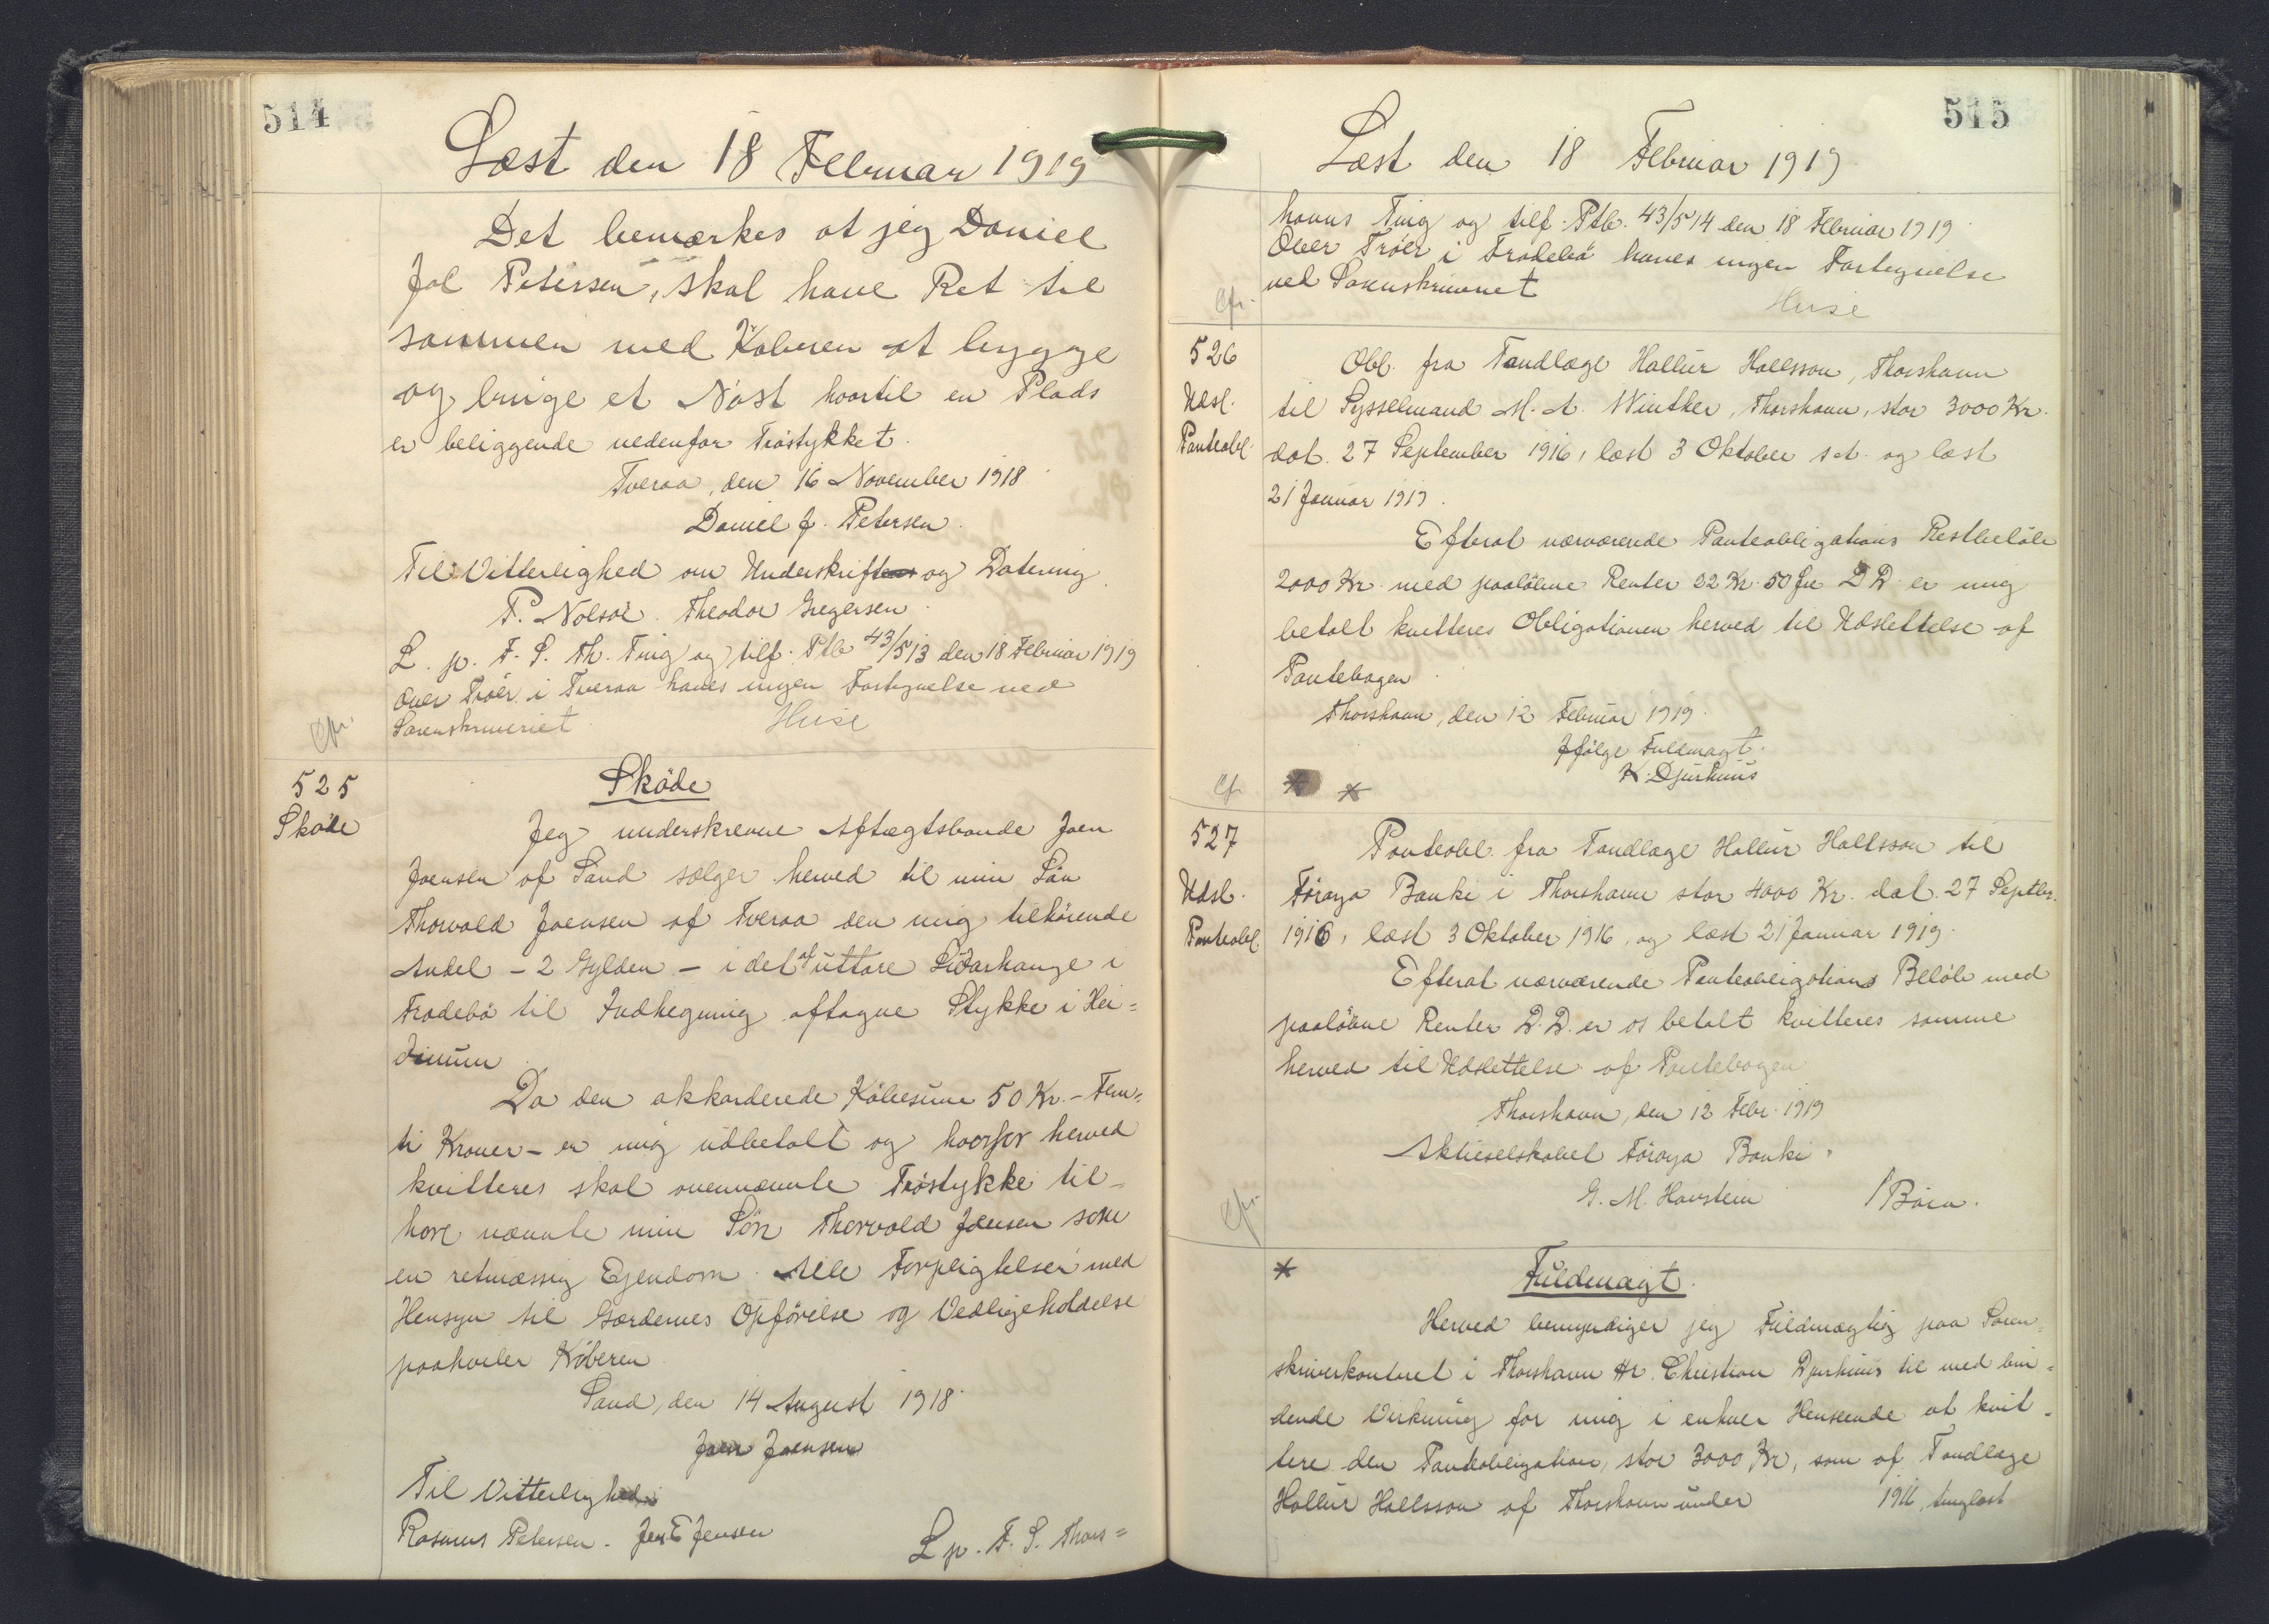 514
Læst den 18 Februar 1919
Det bemærkes at jeg Daniel
Jol Petersen, skal have Ret til
sammen med Köberen at bygge
og bruge et Nöst hvortil en Plads
er beliggende nedenfor Tröstykket.
Tveraa, den 16 November 1918
Daniel J. Petersen.
Til Vitterlighed om Underskriften og Datering
P. Nolsøe Theodor Gregersen.
L. p. F. S. Th. Ting og tilf. Ptb 43/513 den 18 Februar 1919
Over Tröer i Tveraa haves ingen Fortegnelse ved
Sorenskriveriet Huse
Cfr.
525
Sköde
Sköde
Jeg underskrevne Aftægtsbonde Joen
Joensen af Sand sælger herved til min Sön
Thorvald Joensen af Tveraa den mig tilhörende
Andel - 2 Gylden - i det af uttare Lidarhauge i
Frodebö til Indhegning aftagne Stykke i Hei-
dinum
Da den akkorderede Köbesum 50 Kr. - Fem-
ti Kroner - er mig udbetalt og hvorfor herved
kvitteres skal ovennævnte Tröstykke til-
höre nævnte min Sön Thorvald Joensen som
en retmæssig Ejendom. Alle Forpligtelser med
Hensyn til Gærdernes Opförelse og Vedligeholdelse
paahviler Köberen
Sand, den 14 August 1918.
Joen Joensen
Til Vitterlighed
Rasmus Petersen. Jens E Jensen
L p. F. S. Thors=
515
Læst den 18 Februar 1919
havns Ting og tilf. Ptb. 43/514 den 18 Februar 1919
Over Tröer i Frodebö haves ingen Fortegnelse
ved Sorenskriveriet
Huse
Cfr.
526
Udsl.
Panteobl.
Obl. fra Tandlæge Hallur Hallsson, Thorshavn
til Sysselmand M. A. Winther, Thorshavn, stor 3000 Kr.
dat. 27 September 1916, læst 3 Oktober s. A. og læst
21 Januar 1919.
Efterat nærværende Panteobligations Restbelöb
2000 Kr. med paalöbne Renter 22 Kr. 50 Øre D D. er mig
betalt kvitteres Obligationen herved til Udslettelse af
Pantebogen
Thorshavn, den 12 Februar 1919.
Ifölge Fuldmagt.
K. Djurhuus
Cfr
* *
527
Udsl.
Panteobl
Panteobl. fra Tandlæge Hallur Hallsson til
Föroya Banki i Thorshavn stor 4000 Kr. dat. 27 Septbr.
1916, læst 3 Oktober 1916, og læst 21 Januar 1919.
Efterat nærværende Panteobligations Belöb med
paalöbne Renter D. D. er os betalt kvitteres samme
herved til Udslettelse af Pantebogen
Thorshavn, den 12 Febr. 1919
Aktieselskabet Föroya Banki.
G. M. Havstein
Cfr.
*
Fuldmagt.
Herved bemyndiger jeg Fuldmægtig paa Soren-
skriverkontoret i Thorshavn Hr. Christian Djurhuus til med bin-
dende Virkning for mig i enhver Henseende at kvit-
tere den Panteobligation, stor 3000 Kr, som af Tandlæge
Hallur Hallsson af Thorshavn under 1916, tinglæst